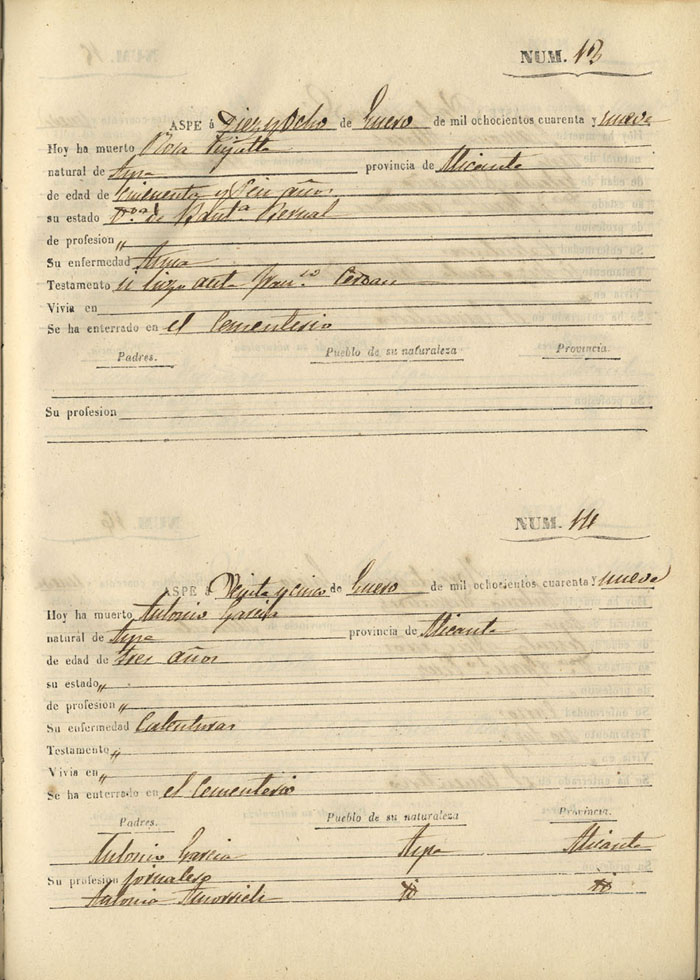 NUM. 13
ASPE á Diez y Ocho de Enero de mil ochocientos cuarenta y nueve
Hoy ha muerto Rosa
natural de Aspe provincia de Alicante
de edad de Cincuenta y Seis años
su estado V.da de Baut.a Bernal
de profesion „
Su enfermedad Asma
Testamento si hizo ante Fran.co Cerdan
Vivia en
Se ha enterrado en el Cementerio
Padres. Pueblo de su naturaleza Provincia.
Su profesion
NUM. 14
ASPE á Veinte y cinco de Enero de mil ochocientos cuarenta y nueve
Hoy ha muerto Antonio Garcia
natural de Aspe provincia de Alicante
de edad de tres años
su estado „
de profesion „
Su enfermedad Calenturas
Testamento „
Vivia en „
Se ha enterrado en el Cementerio
Padres. Pueblo de su naturaleza Provincia.
Antonio Garcia Aspe Alicante
Su profesion jornalero
id id